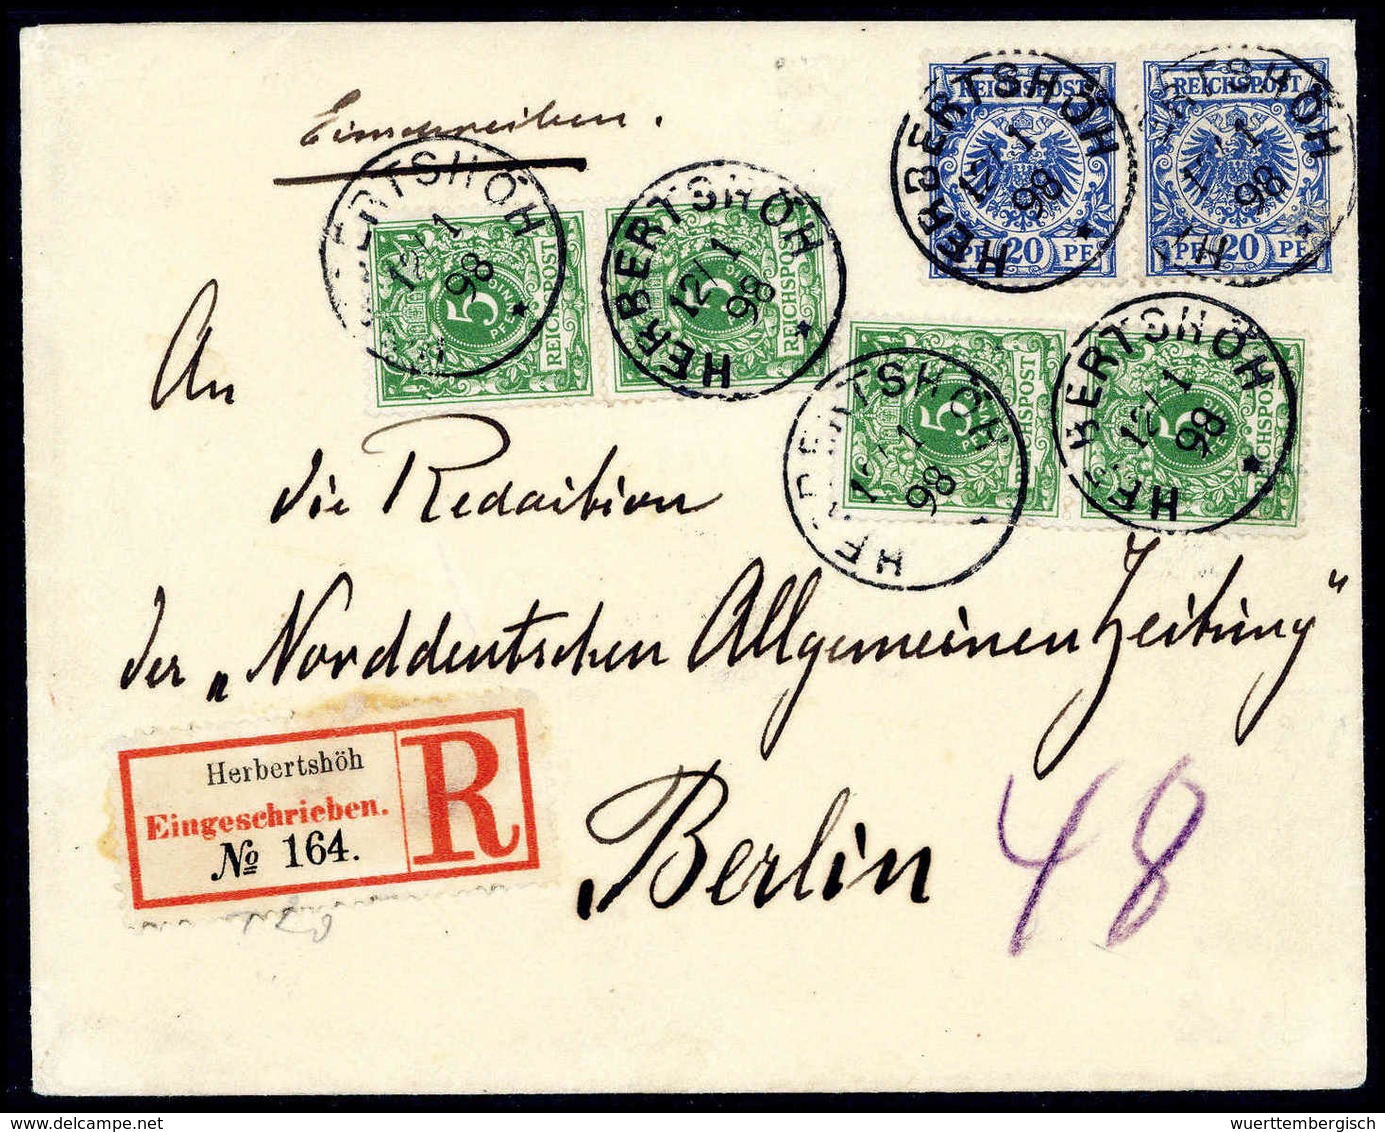 Einschreiben.
REICHSPOST
20 PF
REICHSPOST
PF 20 PF
HERBERTSHÖH
12/1
98
HERTSHÖH
1
98
ERTSHÖH
12/1
98
HERBERTSHÖH
12/1
98
5
REICHSPOST
5
REICHSPOST
HERBERTSHÖH
1
98
HERBERTSHÖH
12/1
98
5
REICHSPOST
5
REICHSPOST
An
die Redaction
der „Norddeutschen Allgemeinen Zeitung“
Berlin
48
Herbertshöh
Eingeschrieben.
№ 164.
R
wuerttembergisch